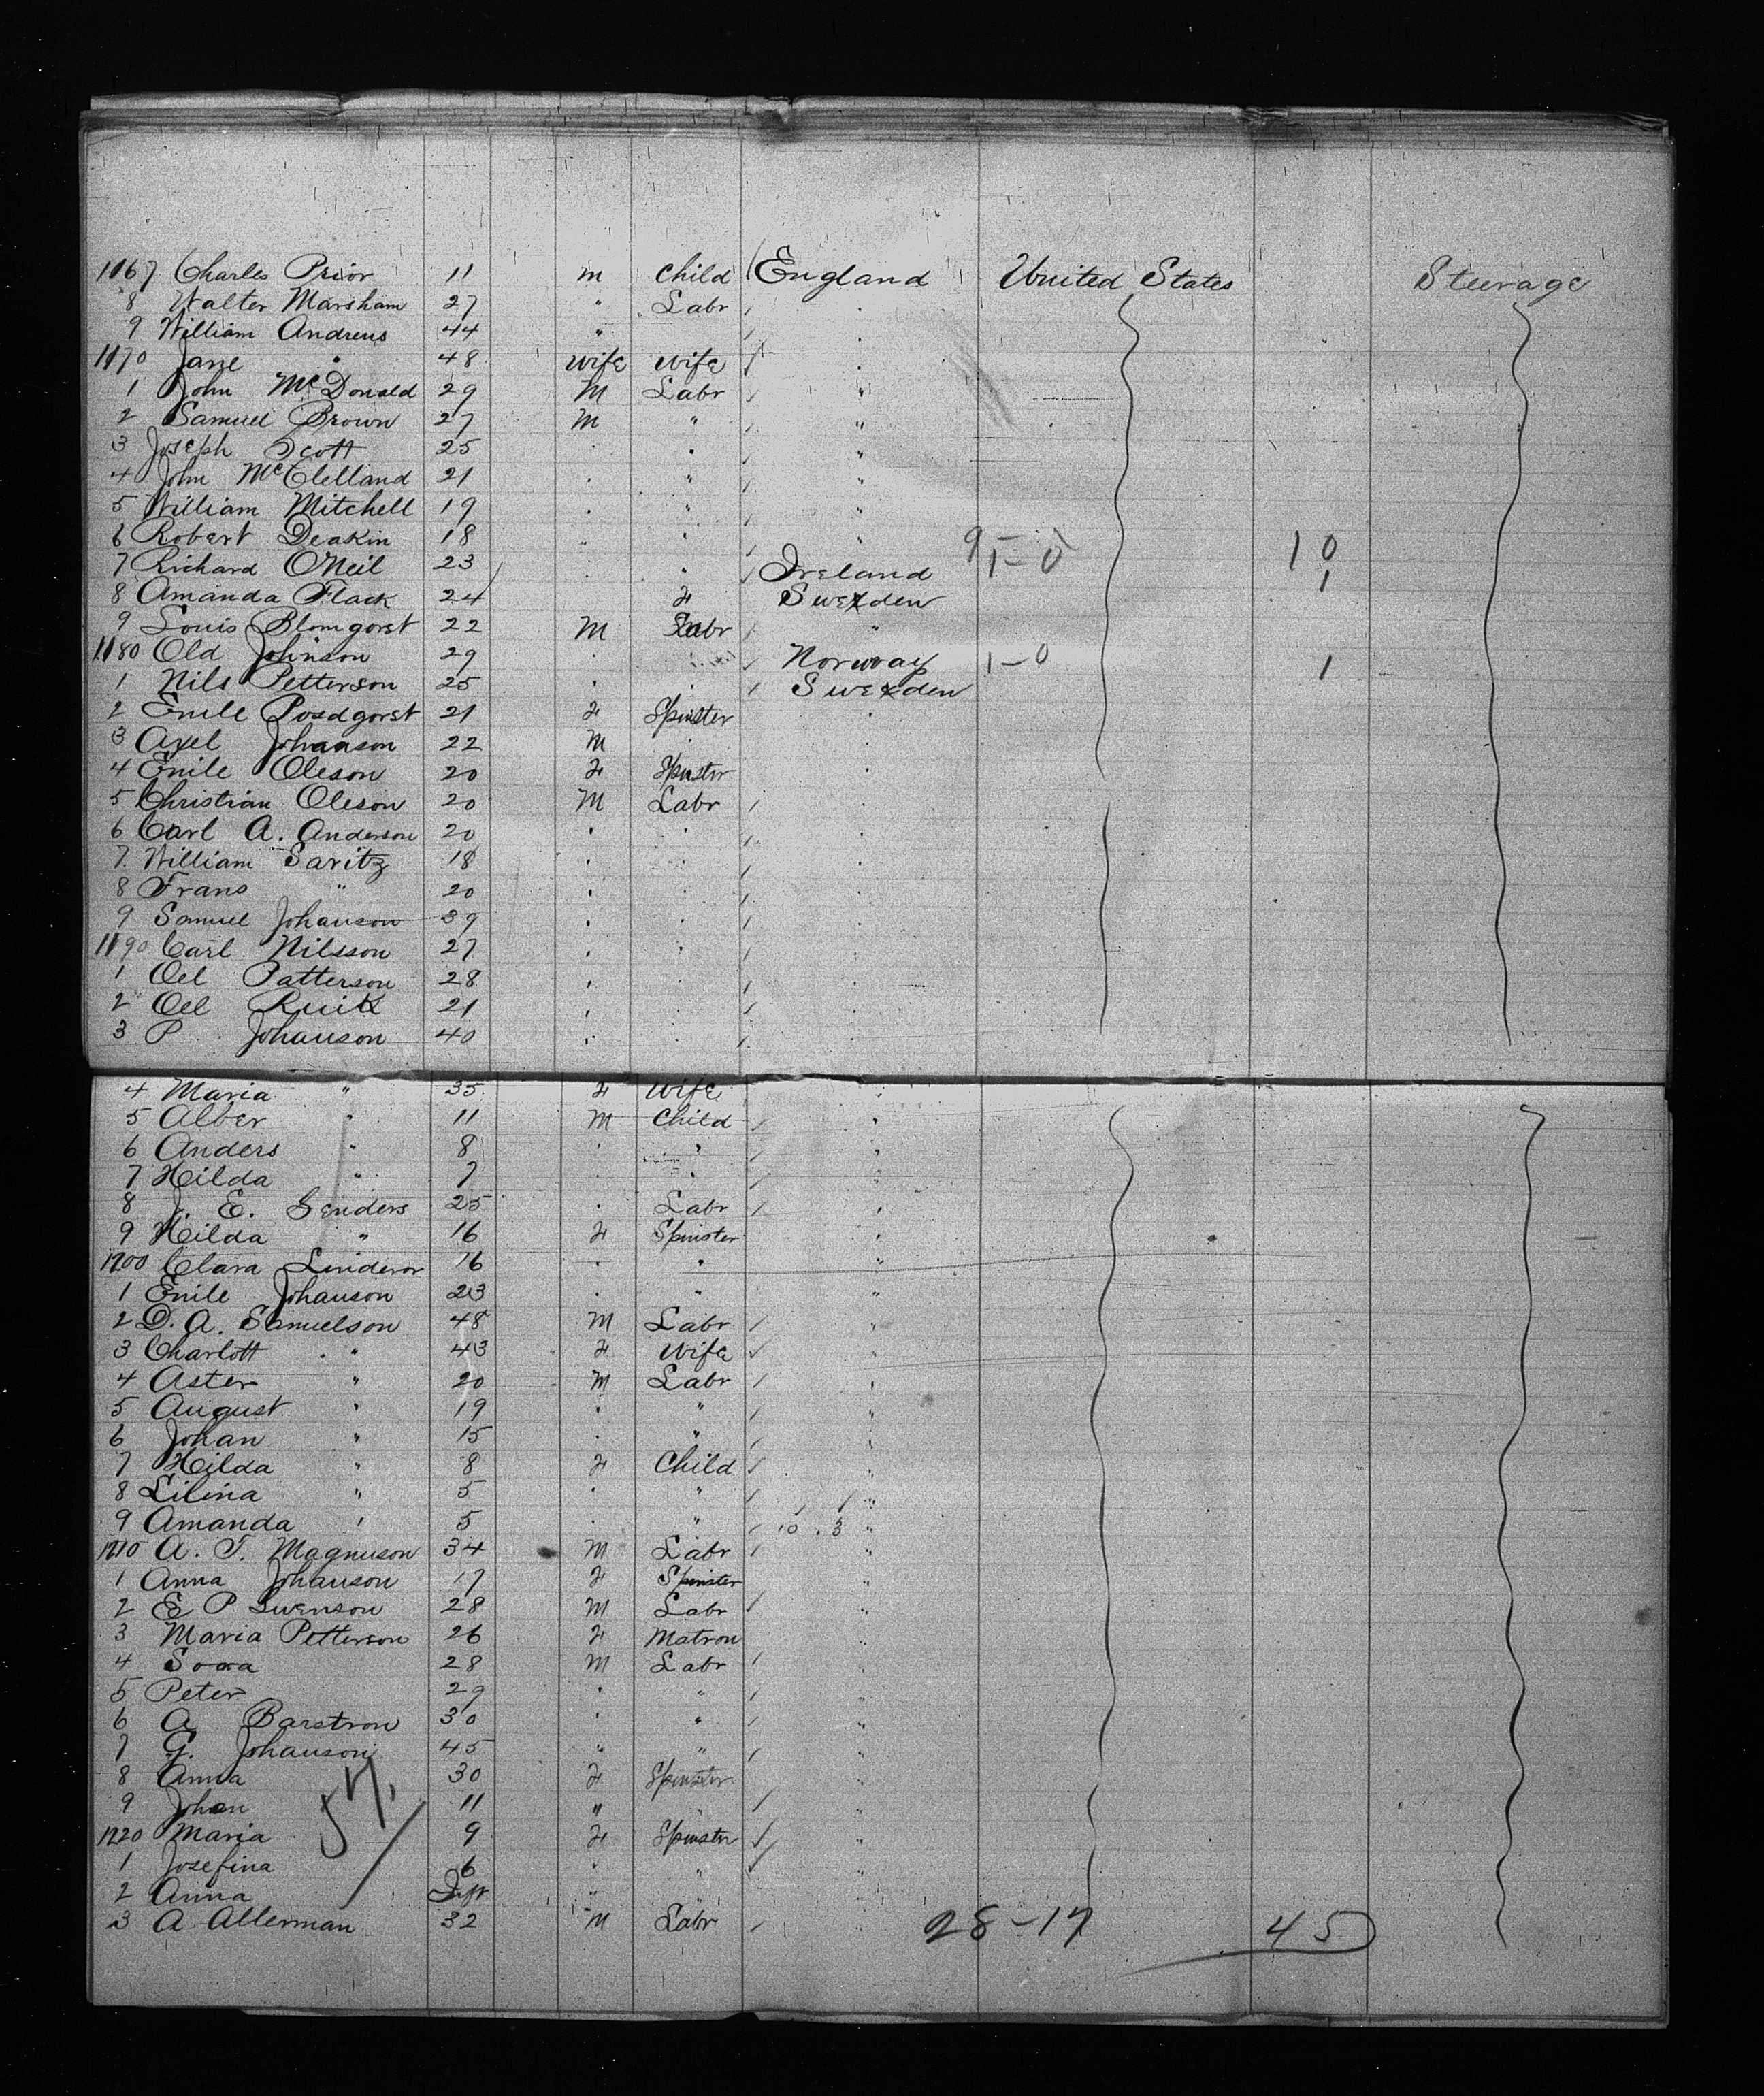 1167 Charles Prior 11 m Child England United States Steerage
8 Walter Marsham 27 " Labr
9 William Andrews 44 "
1170 Jane " 48 wife wife
1 John McDonald 29 M Labr "
2 Samuel Brown 27 M " "
3 Joseph Scott 25 " "
4 John McClelland 21 " "
5 William Mitchell 19 " "
6 Robert Deakin 18 " " 9 10
7 Richard ONeil 23 " Ireland 1-0 1
8 Amanda Flack 24 F Sweden
9 Louis Blomgorst 22 M Labr "
1180 Old Johnson 29 Norway 1-0 1
1 Nils Petterson 25 Sweden
2 Emile Posdgorst 21 F Spinster
3 Axel Johanson 22 M
4 Emile Oleson 20 F Spinster
5 Christian Oleson 20 M Labr
6 Carl A. Anderson 20
7 William Saritz 18
8 Frans " 20
9 Samuel Johanson 39
1190 Carl Nilsson 27
1 Oel Patterson 28
2 Oel 21
3 P Johanson 40
4 Maria " 35 F Wife
5 Alber " 11 M Child "
6 Anders " 8 " "
7 Hilda " 7
8 J. E. Senders 25 Labr
9 Hilda " 16 F Spinster
1200 Clara Linderor 16 " "
1 Emile Johanson 23 " "
2 D. A. Samuelson 48 M Labr "
3 Charlott " 43 F Wife
4 Aster " 20 M Labr
5 August " 19 " "
6 Johan " 15 " "
7 Hilda " 8 F Child "
8 Lilina " 5 " "
9 Amanda " 5 " 10 . 3 "
1210 A. T. Magnuson 34 M Labr "
1 Anna Johanson 17 F Spinster "
2 E P Swenson 28 M Labr "
3 Maria Petterson 26 F Matron "
4 28 M Labr "
5 Peter 29 " "
6 A Barstron 30 " "
7 G. Johanson 45 " " "
8 Anna 30 F Spinster
9 Johan 11 "
1220 Maria 9 F Spinster "
1 Josefina 6 " "
2 Anna Inft "
3 A Allerman 32 M Labr 28-17 45
57